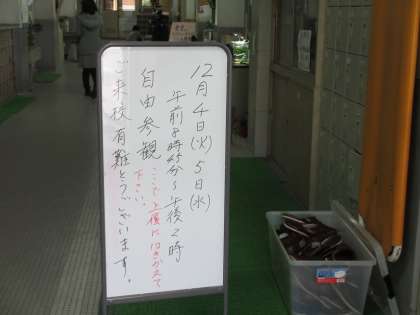 12月4日(火)5日(水)
午前8時45分～午後2時
自由参観
ここで上履にはきかえて
下さい。
ご来校有難とうございます。